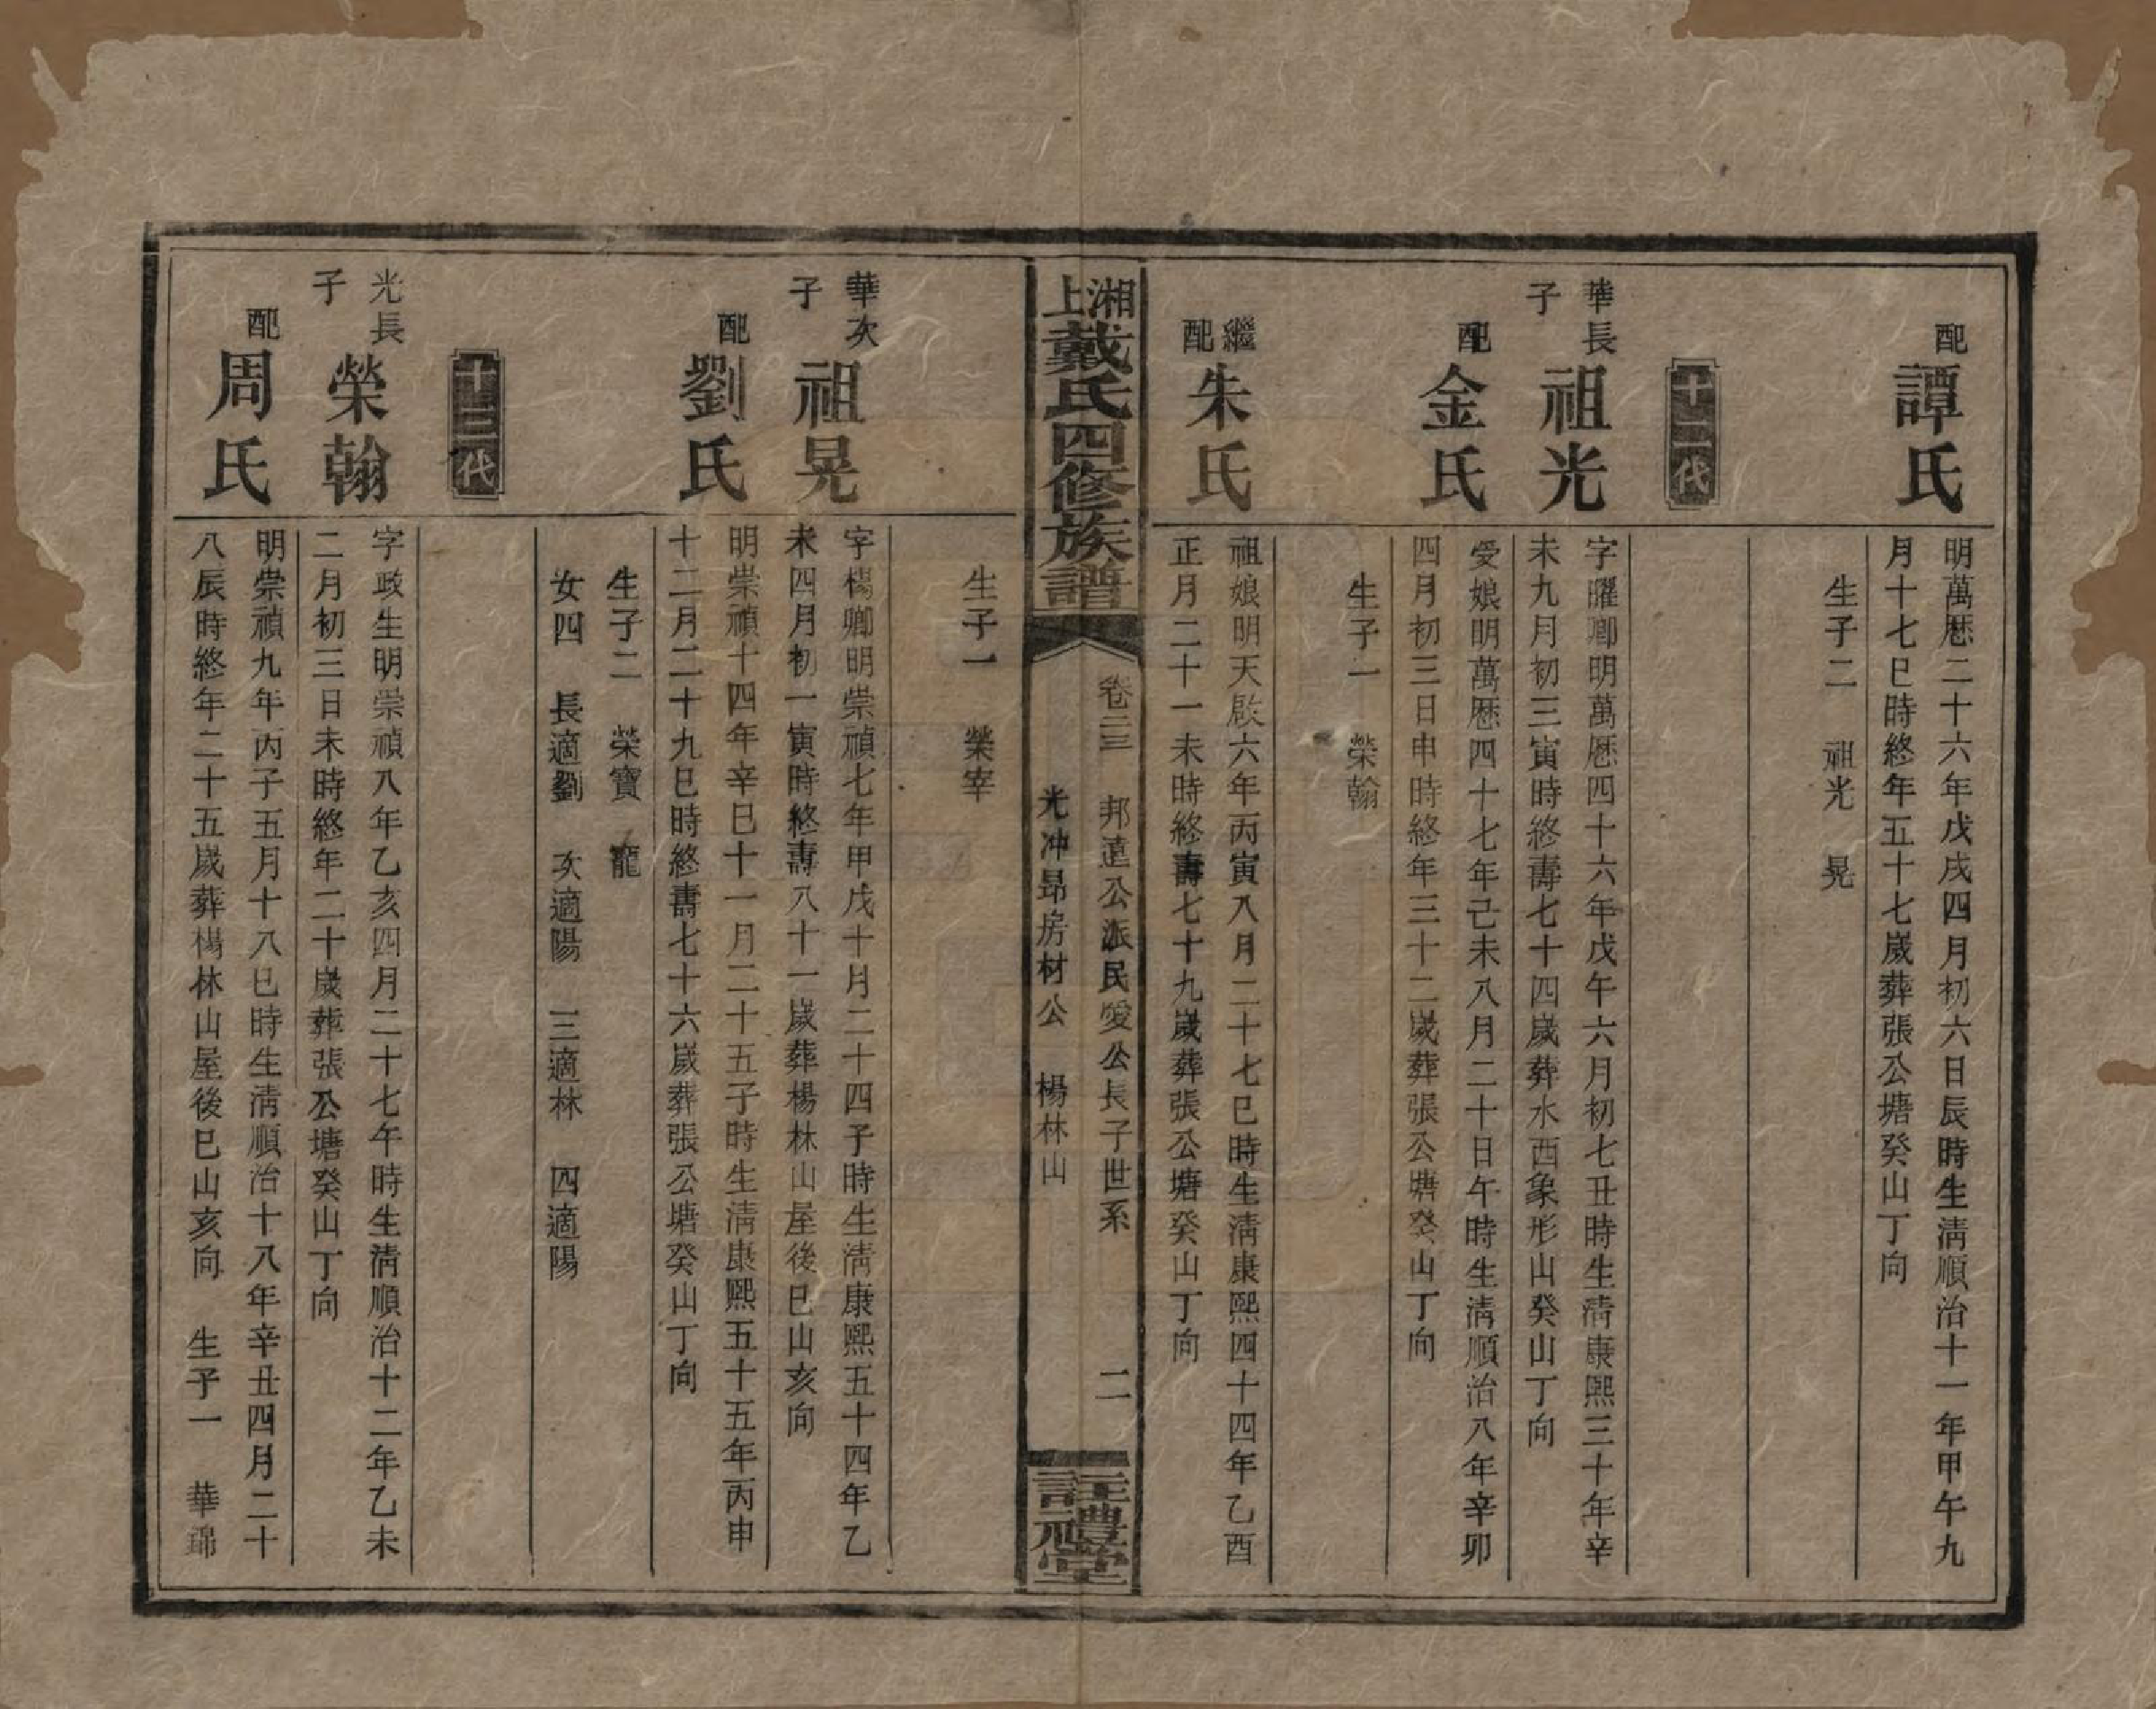 配
譚氏
明萬厯二十六年戊戌四月初六日辰時生淸順治十一年甲午九
月十七巳時終年五十七歲葬張公塘癸山丁向
生子二　祖光　晃
十二代
華長
子
祖光
字曜卿明萬厯四十六年戊午六月初七丑時生淸康熙三十年辛
未九月初三寅時終壽七十四歲葬水西象形山癸山丁向
配
金氏
受娘明萬厯四十七年己未八月二十日午時生淸順治八年辛卯
四月初三日申時終年三十二歲葬張公塘癸山丁向
生子一　榮翰
繼
配
朱氏
祖娘明天啟六年丙寅八月二十七巳時生淸康熙四十四年乙酉
正月二十一未時終壽七十九歲葬張公塘癸山丁向
湘上戴氏四修族譜
卷二三　邦達公派民愛公長子世系　二
光冲昻房材公　楊林山
註禮堂
生子一　榮宰
華次
子
祖晃
字楊卿明崇禎七年甲戌十月二十四子時生淸康熙五十四年乙
未四月初一寅時終壽八十一歲葬楊林山屋後巳山亥向
配
劉氏
明崇禎十四年辛巳十一月二十五子時生淸康熙五十五年丙申
十二月二十九巳時終壽七十六歲葬張公塘癸山丁向
生子二　榮寶　寵
女四　長適劉　次適陽　三適林　四適陽
十三代
光長
子
榮翰
字政生明崇禎八年乙亥四月二十七午時生淸順治十二年乙未
二月初三日未時終年二十歲葬張公塘癸山丁向
配
周氏
明崇禎九年丙子五月十八巳時生淸順治十八年辛丑四月二十
八辰時終年二十五歲葬楊林山屋後巳山亥向　生子一　華錦